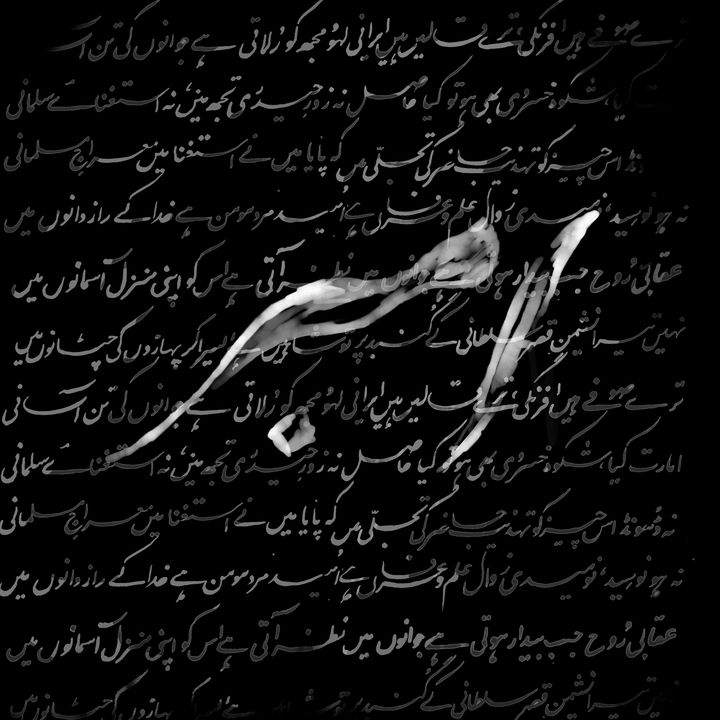 ترے صوفے ہیں افرنگی، ترے قالیں ہیں ایرانی لہو مجھ کو رُلاتی ہے جوانوں کی تن آسا
کیا، شکوہ خسروی بھی ہو تو کیا حاصل نہ زورِ حیدری تجھ میں، نہ استغنائے سلمانی
اس چیز کو تہذیب حاضر کی تجلّی میں کہ پایا میں نے استغنا میں معراج مسلمانی
نہ ہو نومید، نومیدی زوال علم و عرفاں ہے اُمید مرد مومن ہے خدا کے راز دانوں میں
عقابی رُوح جب بیدار ہوتی ہے جوانوں میں نظر آتی ہے اس کو اپنی منزل آسمانوں میں
نہیں تیرا نشیمن قصر سلطانی کے گنبد پر تو شاہیں ہے بسیرا کر پہاڑوں کی چٹانوں میں
ترے صوفے ہیں افرنگی، ترے قالیں ہیں ایرانی لہو مجھ کو رُلاتی ہے جوانوں کی تن آسانی
امارت کیا، شکوہ خسروی بھی ہو تو کیا حاصل نہ زورِ حیدری تجھ میں، نہ استغنائے سلمانی
نہ ڈھونڈ اس چیز کو تہذیب حاضر کی تجلّی میں کہ پایا میں نے استغنا میں معراج مسلمانی
نہ ہو نومید، نومیدی زوال علم و عرفاں ہے اُمید مرد مومن ہے خدا کے راز دانوں میں
عقابی رُوح جب بیدار ہوتی ہے جوانوں میں نظر آتی ہے اس کو اپنی منزل آسمانوں میں
نہیں تیرا نشیمن قصر سلطانی کے گنبد پر تو شاہیں ہے بسیرا کر پہاڑوں کی چٹانوں میں